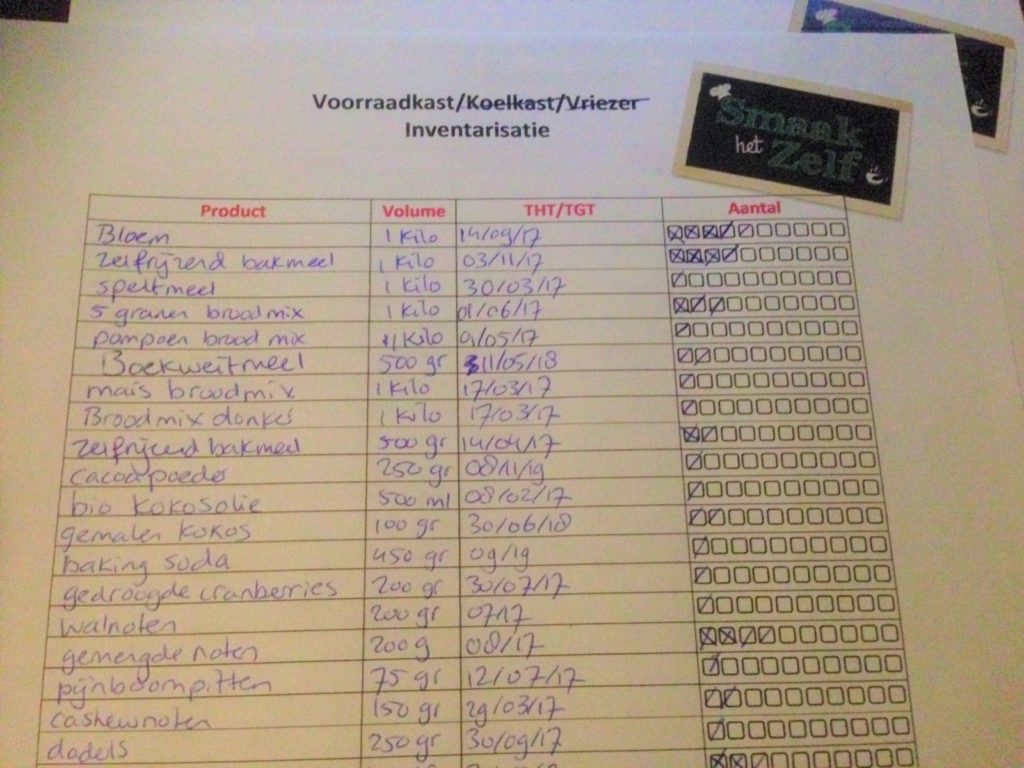 Voorraadkast/Koelkast/Vriezer
Inventarisatie
Smaak
het Zelf
Product Volume THT/TGT Aantal
Bloem 1 kilo 14/09/17
zelfrijzend bakmeel 1 kilo 03/11/17
speltmeel 1 kilo 30/03/17
5 granen broodmix 1 kilo 01/06/17
pompoen brood mix 1 kilo 01/05/17
Boekweitmeel 500 gr 11/05/18
mais broodmix 1 kilo 17/03/17
Broodmix donker 1 kilo 17/03/17
zelfrijzend bakmeel 500 gr 14/04/17
cacoapoeder 250 gr 08/11/19
bio kokosolie 500 ml 08/02/17
gemalen kokos 100 gr 30/06/18
baking soda 450 gr 09/19
gedroogde cranberries 200 gr 30/07/17
walnoten 200 gr 07/17
gemengde noten 200 g 08/17
pijnboompitten 75 gr 12/07/17
cashewnoten 150 gr 29/03/17
dadels 250 gr 30/09/17